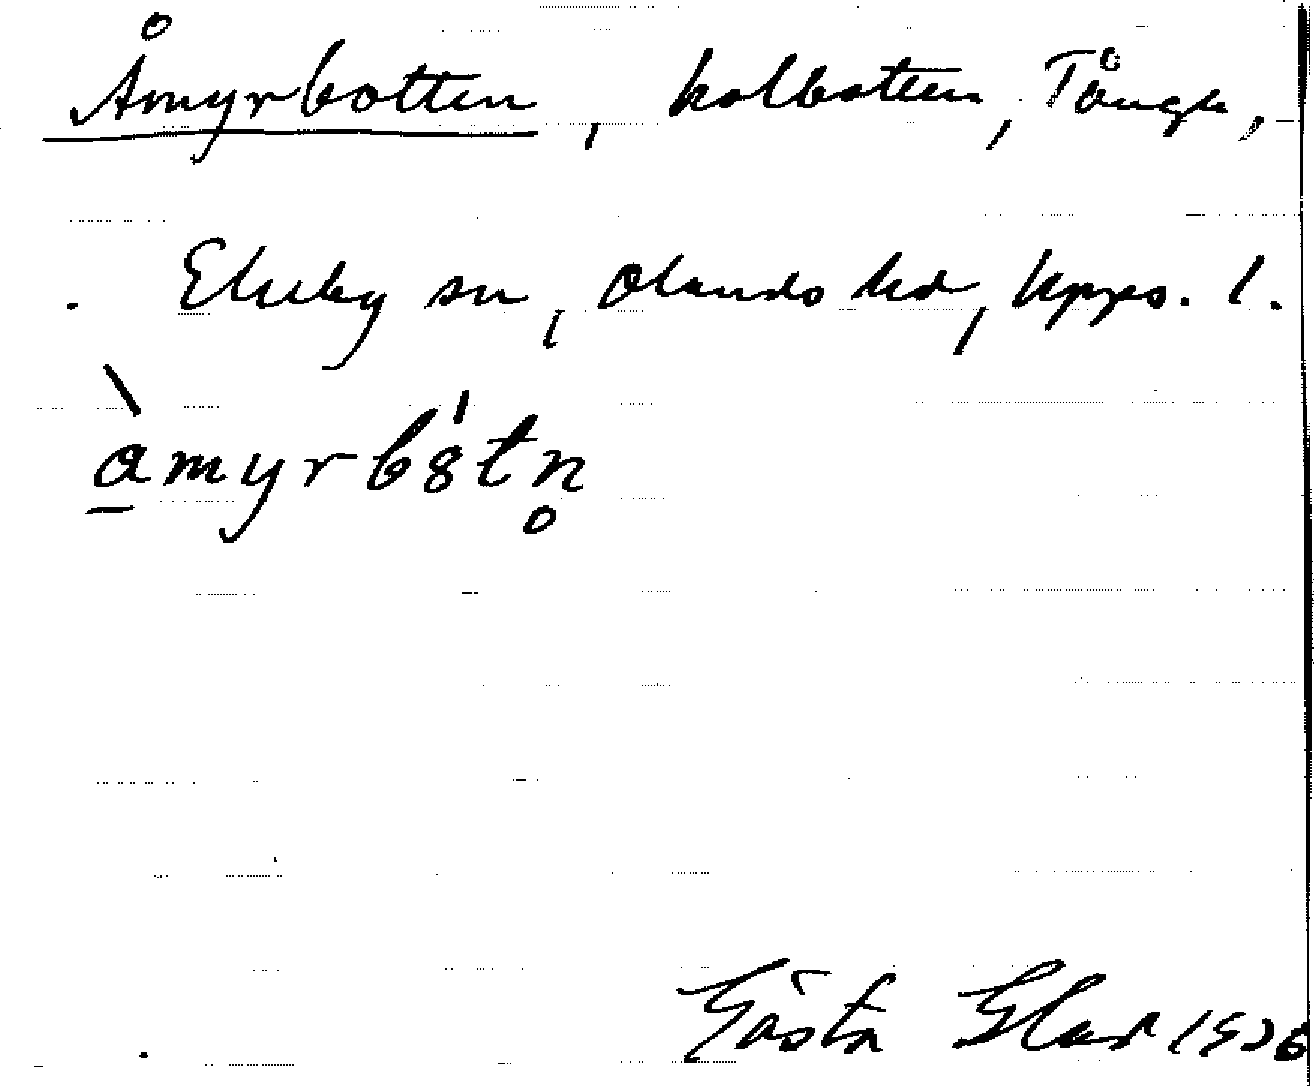 Åmyrbotten, kolbotten, Tånga,
Ekeby sn, Olands hd, Upps. l.
àmyrb8́tn̥
Gösta 1926